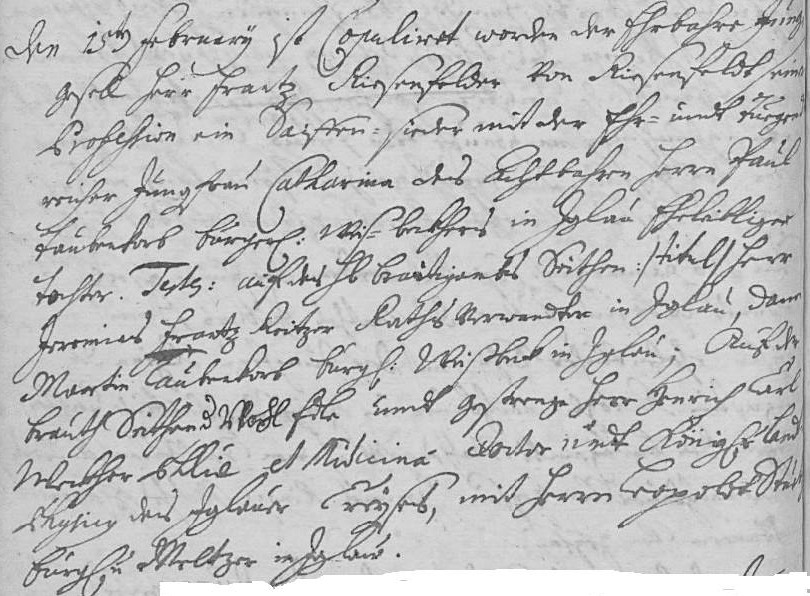 den 15ten February ist Copuliret worden der Ehrbahre Jung
gesell Herr Frantz Riesenfelder Von Riesenfeldt sein
Profession ein Saiffen-sieder mit der Ehr- undt tugent
reicher Jungfrau Catharina des Achtbahren Herrn Paul
Taubenkorb bürgerl: Weis-bekhers in Iglau Eheleibliger
tochter. Testes: auf des H: breitigambs Seithen: /titul/ Herr
Jeremias Frantz Reitzer Raths Verwandter in Iglau, dann
Martin Taubenkorb bürgerl: Weisbek in Iglau; Auf der
brauth Seithen d Wohl Edle undt gestrenge Herr Henrich Carl
Phliae et Medicinae Doctor undt Königl: Land
Physicus des Iglauer Creyses, mit Herrn Leopoldt
bürgl: Meltzer in Iglau.